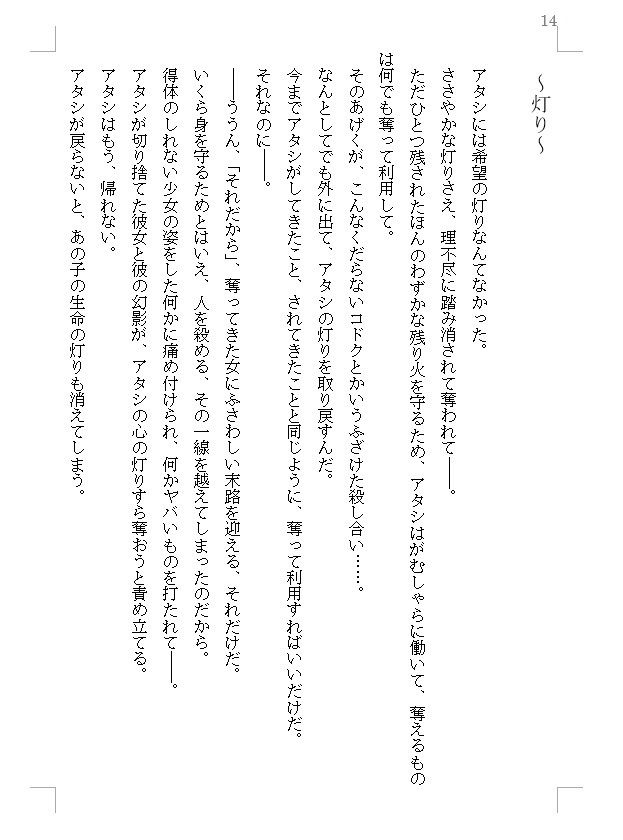 14
～灯り～
アタシには希望の灯りなんてなかった。
ささやかな灯りさえ、理不尽に踏み消されて奪われて――。
ただひとつ残されたほんのわずかな残り火を守るため、アタシはがむしゃらに働いて、奪えるもの
は何でも奪って利用して。
そのあげくが、こんなくだらないコドクとかいうふざけた殺し合い……。
なんとしてでも外に出て、アタシの灯りを取り戻すんだ。
今までアタシがしてきたこと、されてきたことと同じように、奪って利用すればいいだけだ。
それなのに――。
――ううん、「それだから」、奪ってきた女にふさわしい末路を迎える、それだけだ。
いくら身を守るためとはいえ、人を殺める、その一線を越えてしまったのだから。
得体のしれない少女の姿をした何かに痛め付けられ、何かヤバいものを打たれて――。
アタシが切り捨てた彼女と彼の幻影が、アタシの心の灯りすら奪おうと責め立てる。
アタシはもう、帰れない。
アタシが戻らないと、あの子の生命の灯りも消えてしまう。